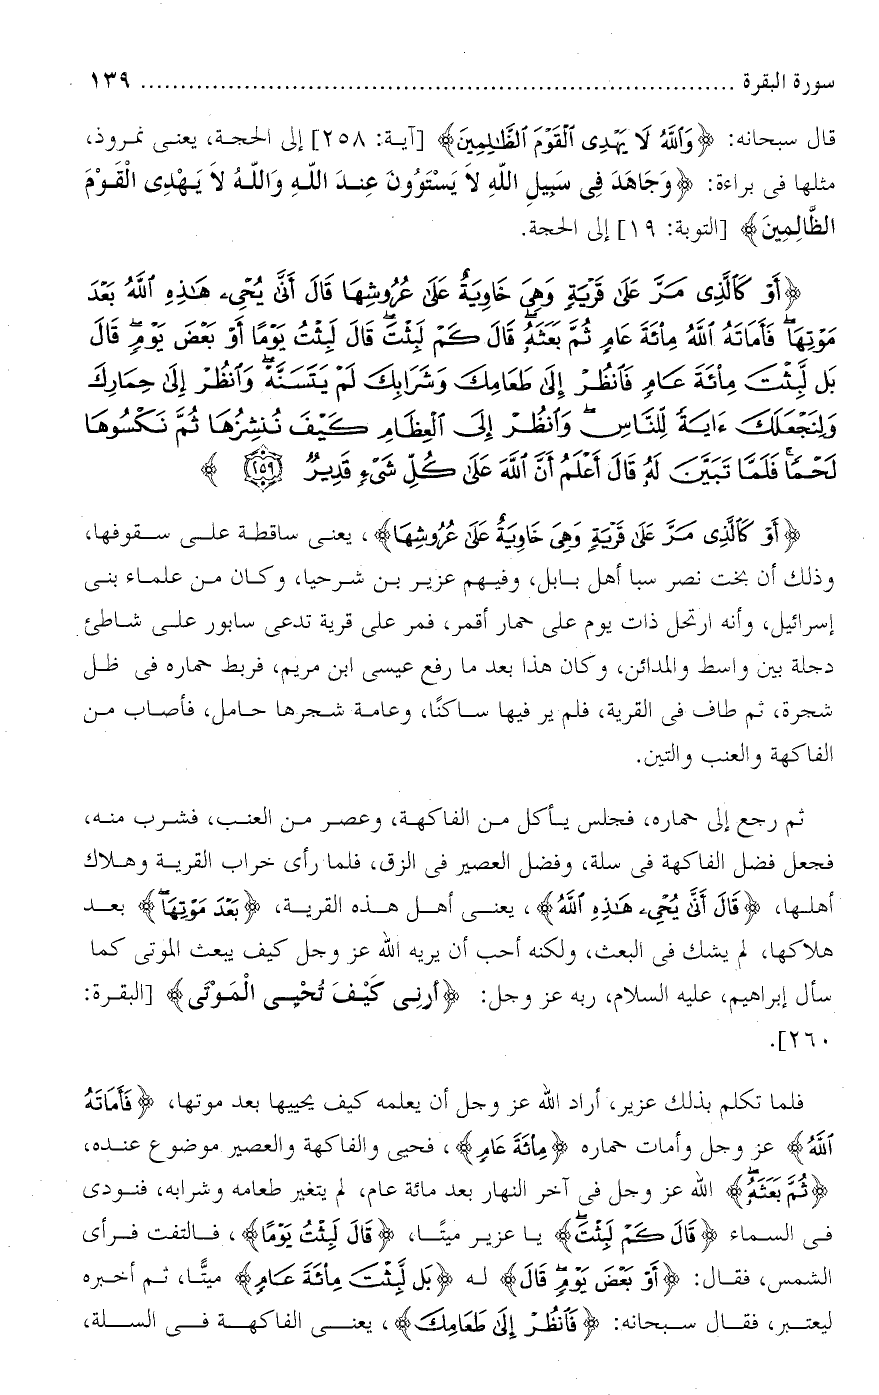 سورة البقرة ........................................................................... ١٣٩
قال سبحانه: ﴿وَٱللَّهُ لَا يَهْدِى ٱلْقَوْمَ ٱلظَّٰلِمِينَ﴾ [آية: ٢٥٨] إلى الحجة، يعنى نمروذ،
مثلها فى براءة: ﴿وَجَاهَدَ فِى سَبِيلِ اللَّهِ لاَ يَسْتَوُونَ عِندَ اللَّهِ وَاللَّهُ لاَ يَهْدِى الْقَوْمَ
الظَّالِمِينَ﴾ [التوبة: ١٩] إلى الحجة.
﴿أَوْ كَٱلَّذِى مَرَّ عَلَىٰ قَرْيَةٍ وَهِىَ خَاوِيَةٌ عَلَىٰ عُرُوشِهَا قَالَ أَنَّىٰ يُحْىِۦ هَٰذِهِ ٱللَّهُ بَعْدَ
مَوْتِهَاۖ فَأَمَاتَهُ ٱللَّهُ مِائَةَ عَامٍ ثُمَّ بَعَثَهُۥۖ قَالَ كَمْ لَبِثْتَۖ قَالَ لَبِثْتُ يَوْمًا أَوْ بَعْضَ يَوْمٍۖ قَالَ
بَل لَّبِثْتَ مِائَةَ عَامٍ فَٱنظُرْ إِلَىٰ طَعَامِكَ وَشَرَابِكَ لَمْ يَتَسَنَّهْۖ وَٱنظُرْ إِلَىٰ حِمَارِكَ
وَلِنَجْعَلَكَ ءَايَةً لِّلنَّاسِۖ وَٱنظُرْ إِلَى ٱلْعِظَامِ كَيْفَ نُنشِزُهَا ثُمَّ نَكْسُوهَا
لَحْمًاۚ فَلَمَّا تَبَيَّنَ لَهُۥ قَالَ أَعْلَمُ أَنَّ ٱللَّهَ عَلَىٰ كُلِّ شَىْءٍ قَدِيرٌ ٢٥٩ ﴾
﴿أَوْ كَٱلَّذِى مَرَّ عَلَىٰ قَرْيَةٍ وَهِىَ خَاوِيَةٌ عَلَىٰ عُرُوشِهَا﴾، يعنى ساقطة على سقوفها،
وذلك أن بخت نصر سبا أهل بابل، وفيهم عزير بن شرحيا، وكان من علماء بنى
إسرائيل، وأنه ارتحل ذات يوم على حمار أقمر، فمر على قرية تدعى سابور على شاطئ
دجلة بين واسط والمدائن، وكان هذا بعد ما رفع عيسى ابن مريم، فربط حماره فى ظل
شجرة، ثم طاف فى القرية، فلم ير فيها ساكنًا، وعامة شجرها حامل، فأصاب من
الفاكهة والعنب والتين.
ثم رجع إلى حماره، فجلس يأكل من الفاكهة، وعصر من العنب، فشرب منه،
فجعل فضل الفاكهة فى سلة، وفضل العصير فى الزق، فلما رأى خراب القرية وهلاك
أهلها، ﴿قَالَ أَنَّىٰ يُحْىِۦ هَٰذِهِ ٱللَّهُ﴾، يعنى أهل هذه القرية، ﴿بَعْدَ مَوْتِهَاۖ﴾ بعد
هلاكها، لم يشك فى البعث، ولكنه أحب أن يريه الله عز وجل كيف يبعث الموتى كما
سأل إبراهيم، عليه السلام، ربه عز وجل: ﴿أَرِنِى كَيْفَ تُحْيِى الْمَوْتَى﴾ [البقرة:
٢٦٠].
فلما تكلم بذلك عزير، أراد الله عز وجل أن يعلمه كيف يحييها بعد موتها، ﴿فَأَمَاتَهُ
ٱللَّهُ﴾ عز وجل وأمات حماره ﴿مِائَةَ عَامٍ﴾، فحيى والفاكهة والعصير موضوع عنده،
﴿ثُمَّ بَعَثَهُۥۖ﴾ الله عز وجل فى آخر النهار بعد مائة عام، لم يتغير طعامه وشرابه، فنودى
فى السماء ﴿قَالَ كَمْ لَبِثْتَۖ﴾ يا عزير ميتًا، ﴿قَالَ لَبِثْتُ يَوْمًا﴾، فالتفت فرأى
الشمس، فقال: ﴿أَوْ بَعْضَ يَوْمٍۖ قَالَ﴾ له ﴿بَل لَّبِثْتَ مِائَةَ عَامٍ﴾ ميتًّا، ثم أخبره
ليعتبر، فقال سبحانه: ﴿فَٱنظُرْ إِلَىٰ طَعَامِكَ﴾، يعنى الفاكهة فى السلة،